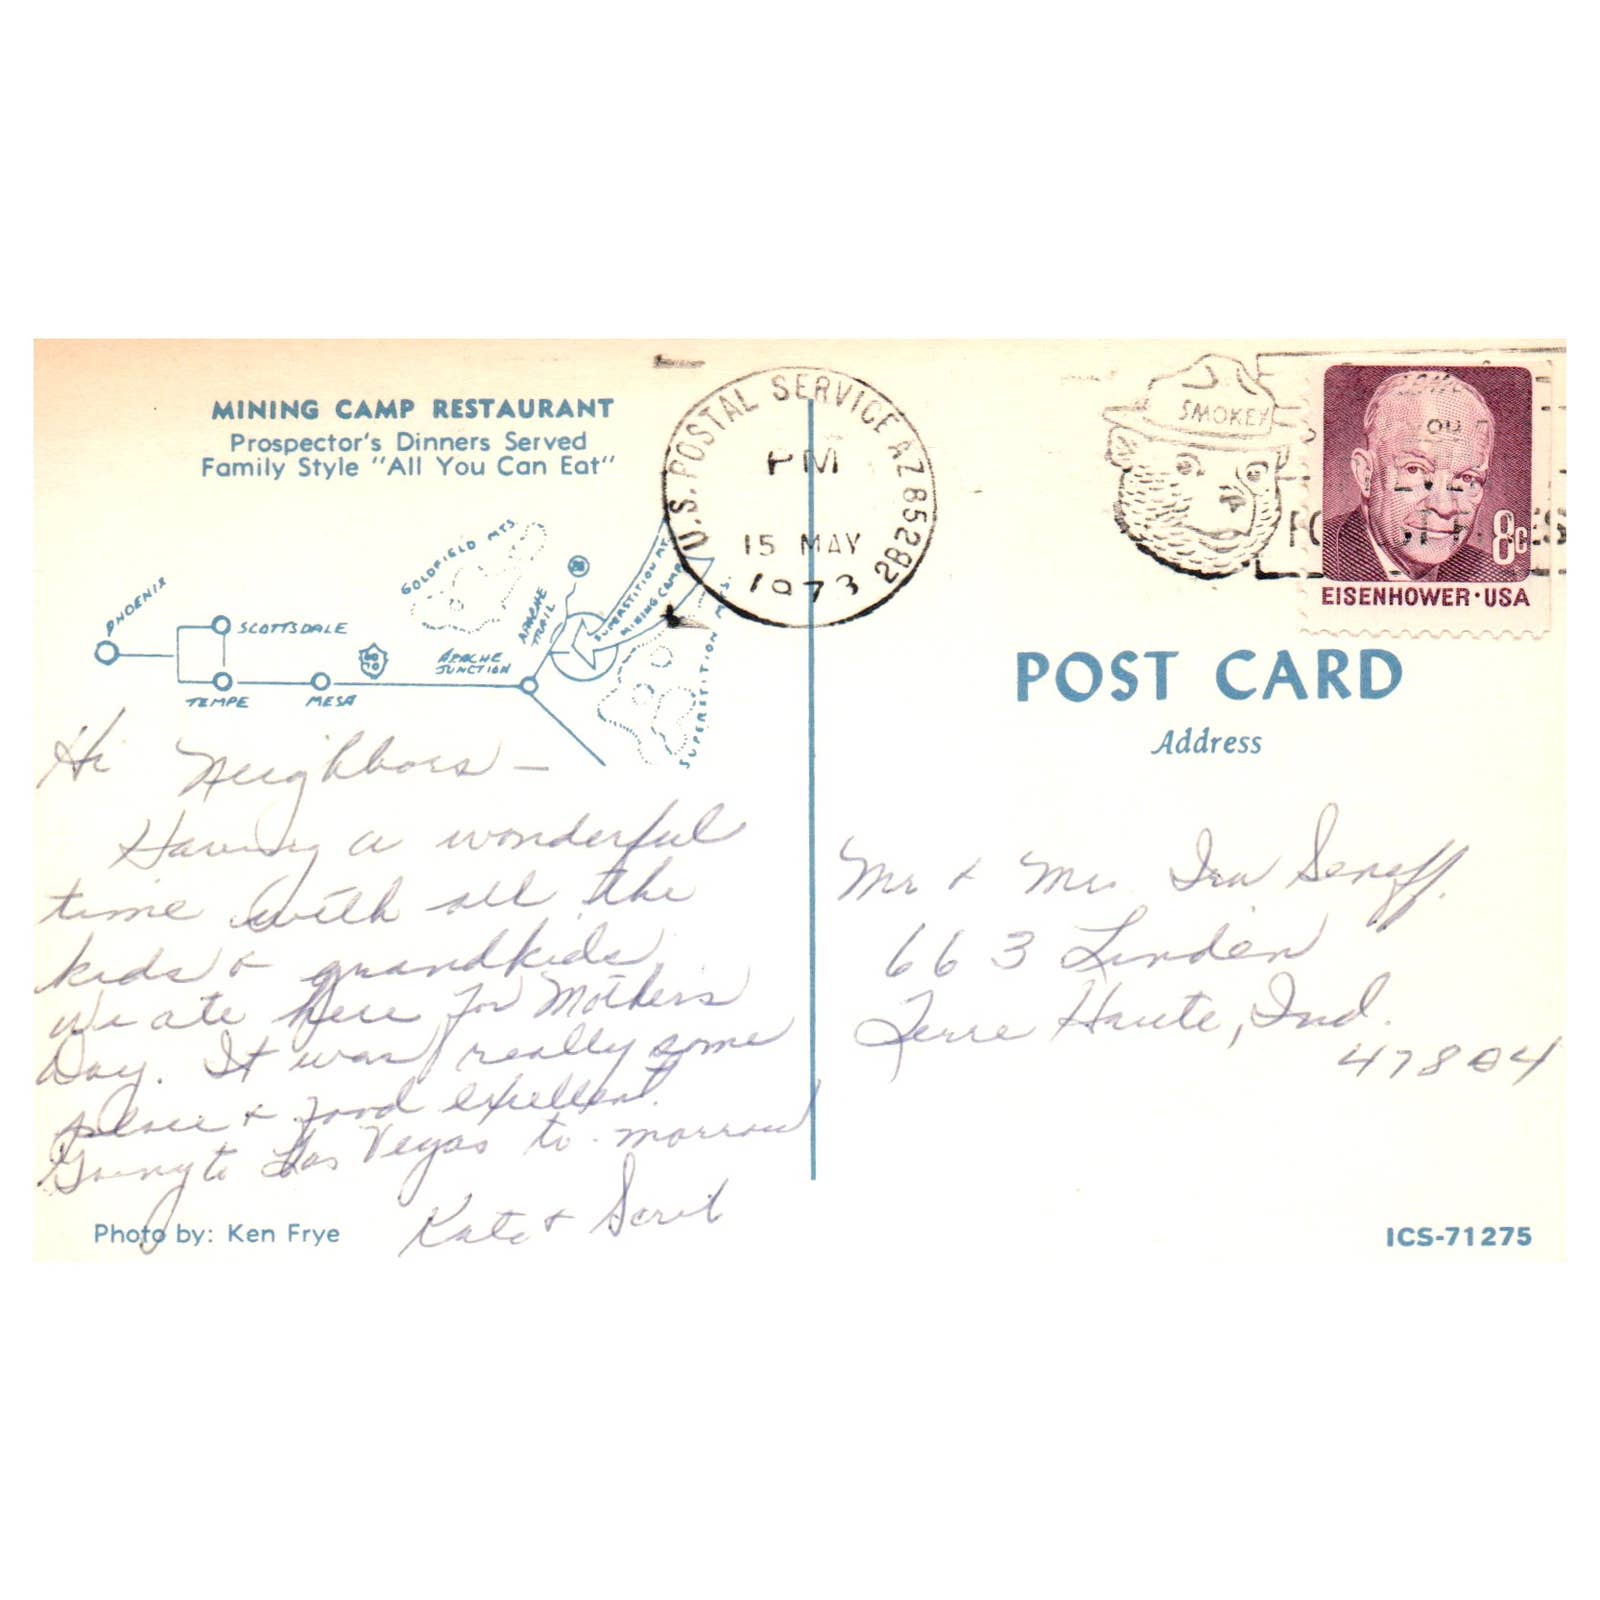 MINING CAMP RESTAURANT
Prospector's Dinners Served
Family Style "All You Can Eat"
PHOENIX
SCOTTSDALE
TEMPE
MESA
60
70
GOLDFIELD MTS.
APACHE
JUNCTION
APACHE
TRAIL
88
SUPERSTITION MT.
MINING CAMP
SUPERSTITION MTS.
Hi Neighbors -
Having a wonderful
time with all the
kids & grandkids.
We ate here for Mothers
Day. It was really some
place & food excellent.
Going to Las Vegas to-morrow
Kate &
Photo by: Ken Frye
U.S. POSTAL SERVICE AZ 85282
PM
15 MAY
1973
SMOKEY
8c
EISENHOWER · USA
POST CARD
Address
Mr & Mrs. Ira Seneff.
663 Linden
Terre Haute, Ind.
47804
ICS-71275